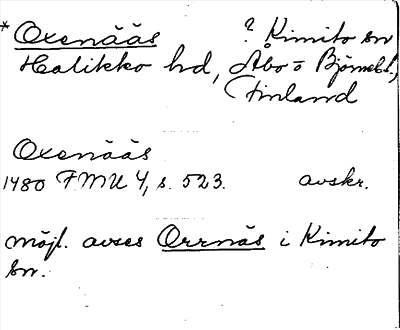 * Oxenääs ? Kimito sn
Halikko hd, Åbo o Björneb.l,
Finland
Oxenääs
1480 FMU 4, s. 523. avskr.
möjl. avses Orrnäs i Kimito
sn.